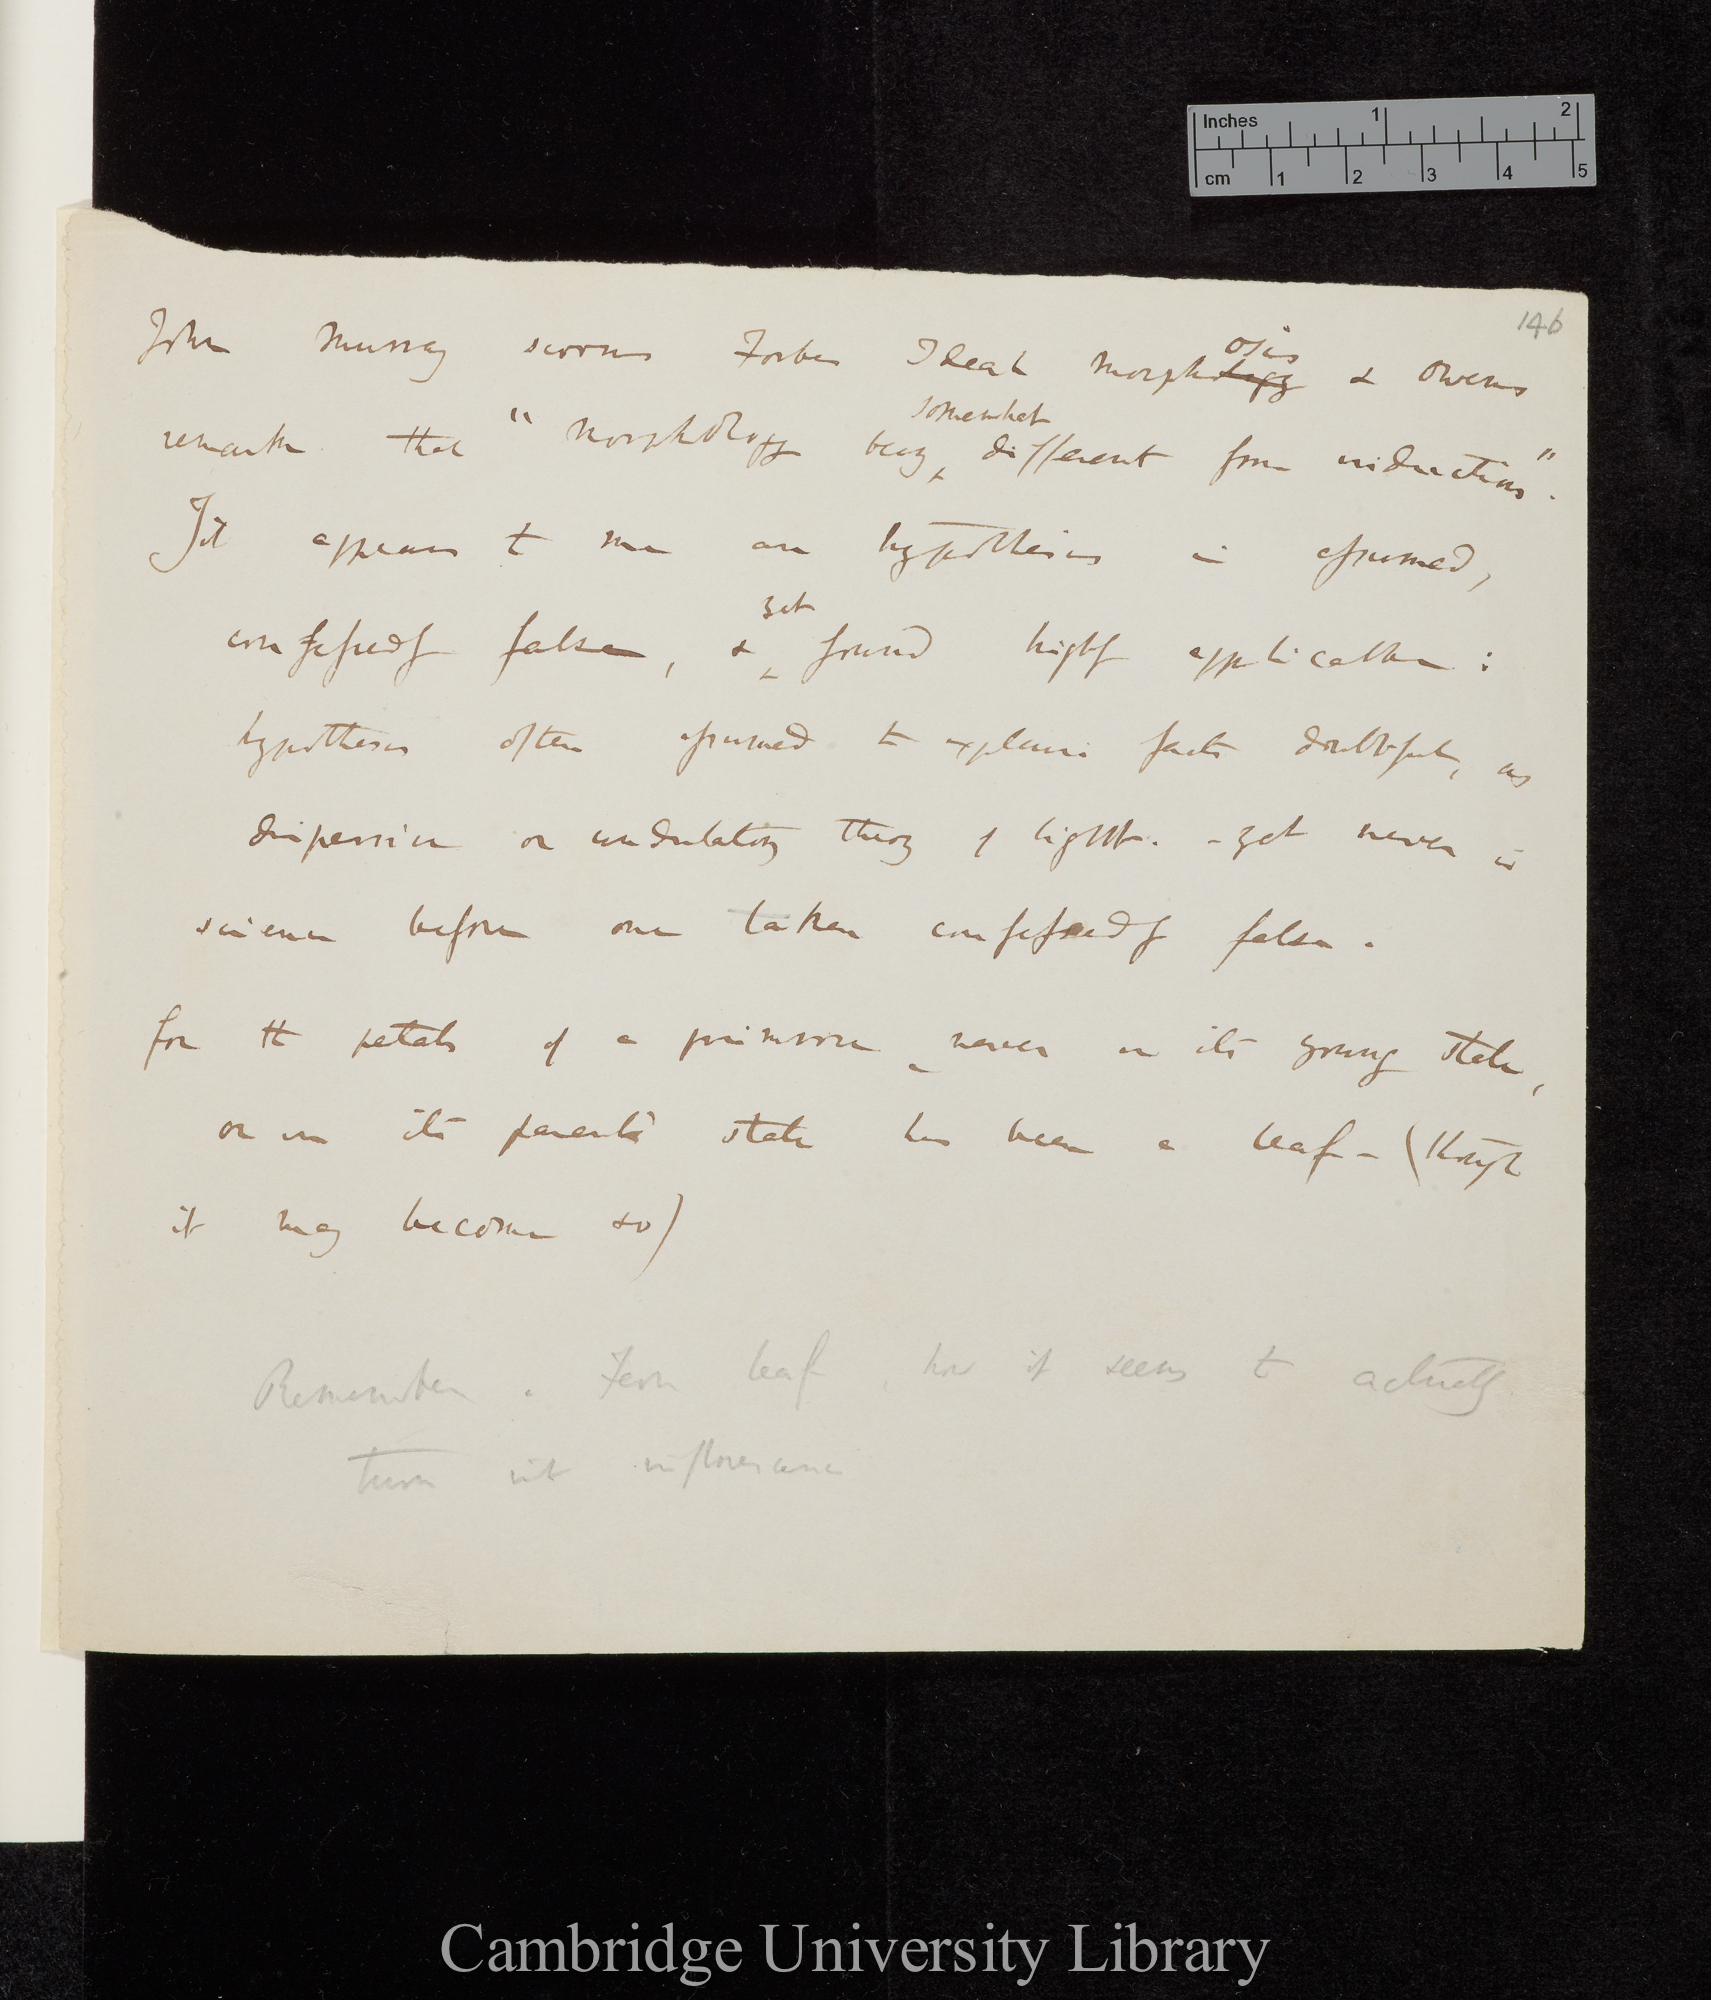 Inches 1 2
cm 1 2 3 4 5
146
John Murray scorns Forbes Ideal Morphology osis & Owens
remark that "Morphology being somewhat different from induction".
It appears to me an hypothesis is assumed,
confessedly false, & yet found highly applicable:
hypothesis often assumed to explain facts doubtful, as
dispersion or undulatory theory of light. - yet never in
science before one taken confessedly false.
for the petals of a primrose never in its young state,
or in its parents' state has been a leaf - (though
it may become so)
Remember a Fern leaf, how it seems to actually
turn into inflorescence
Cambridge University Library